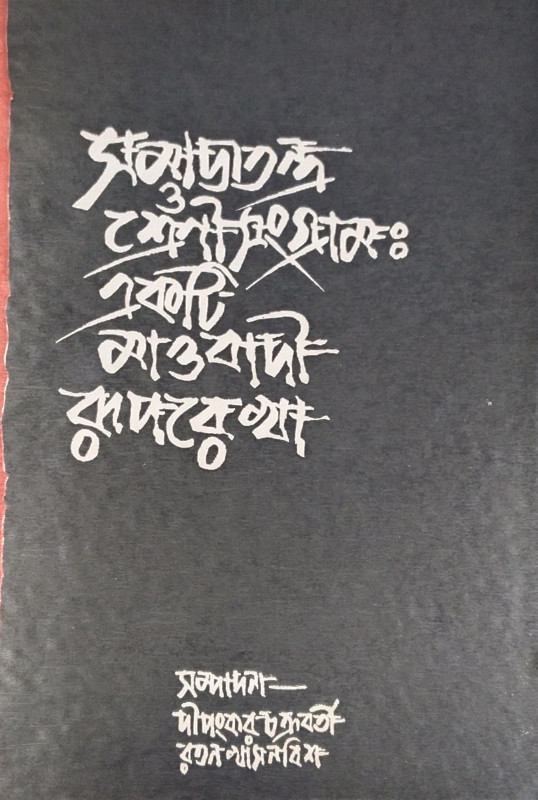 সমাজতন্ত্র
ও
শ্রেণীসংগ্রামঃ
একটি
মাওবাদী
রূপরেখা
সম্পাদনা—
দীপংকর চক্রবর্তী
রতন খাসনবিশ